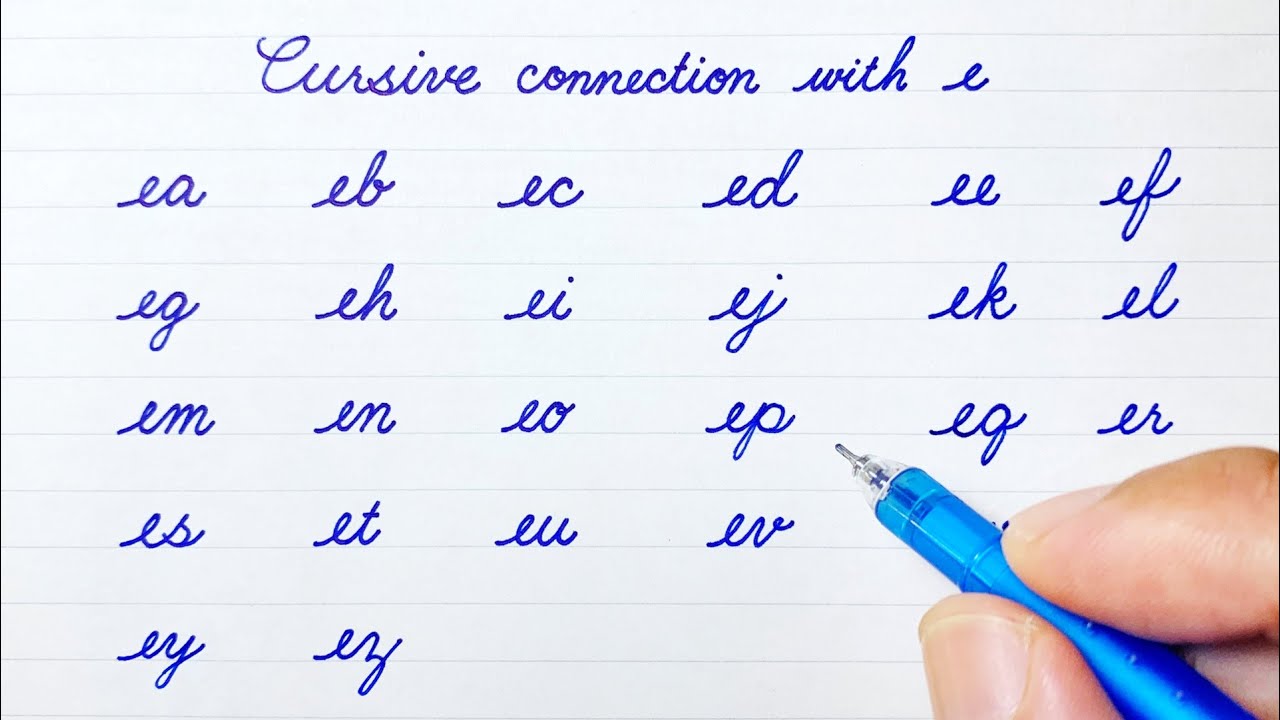 Cursive connection with e
ea eb ec ed ee ef
eg eh ei ej ek el
em en eo ep eq er
es et eu ev
ey ez